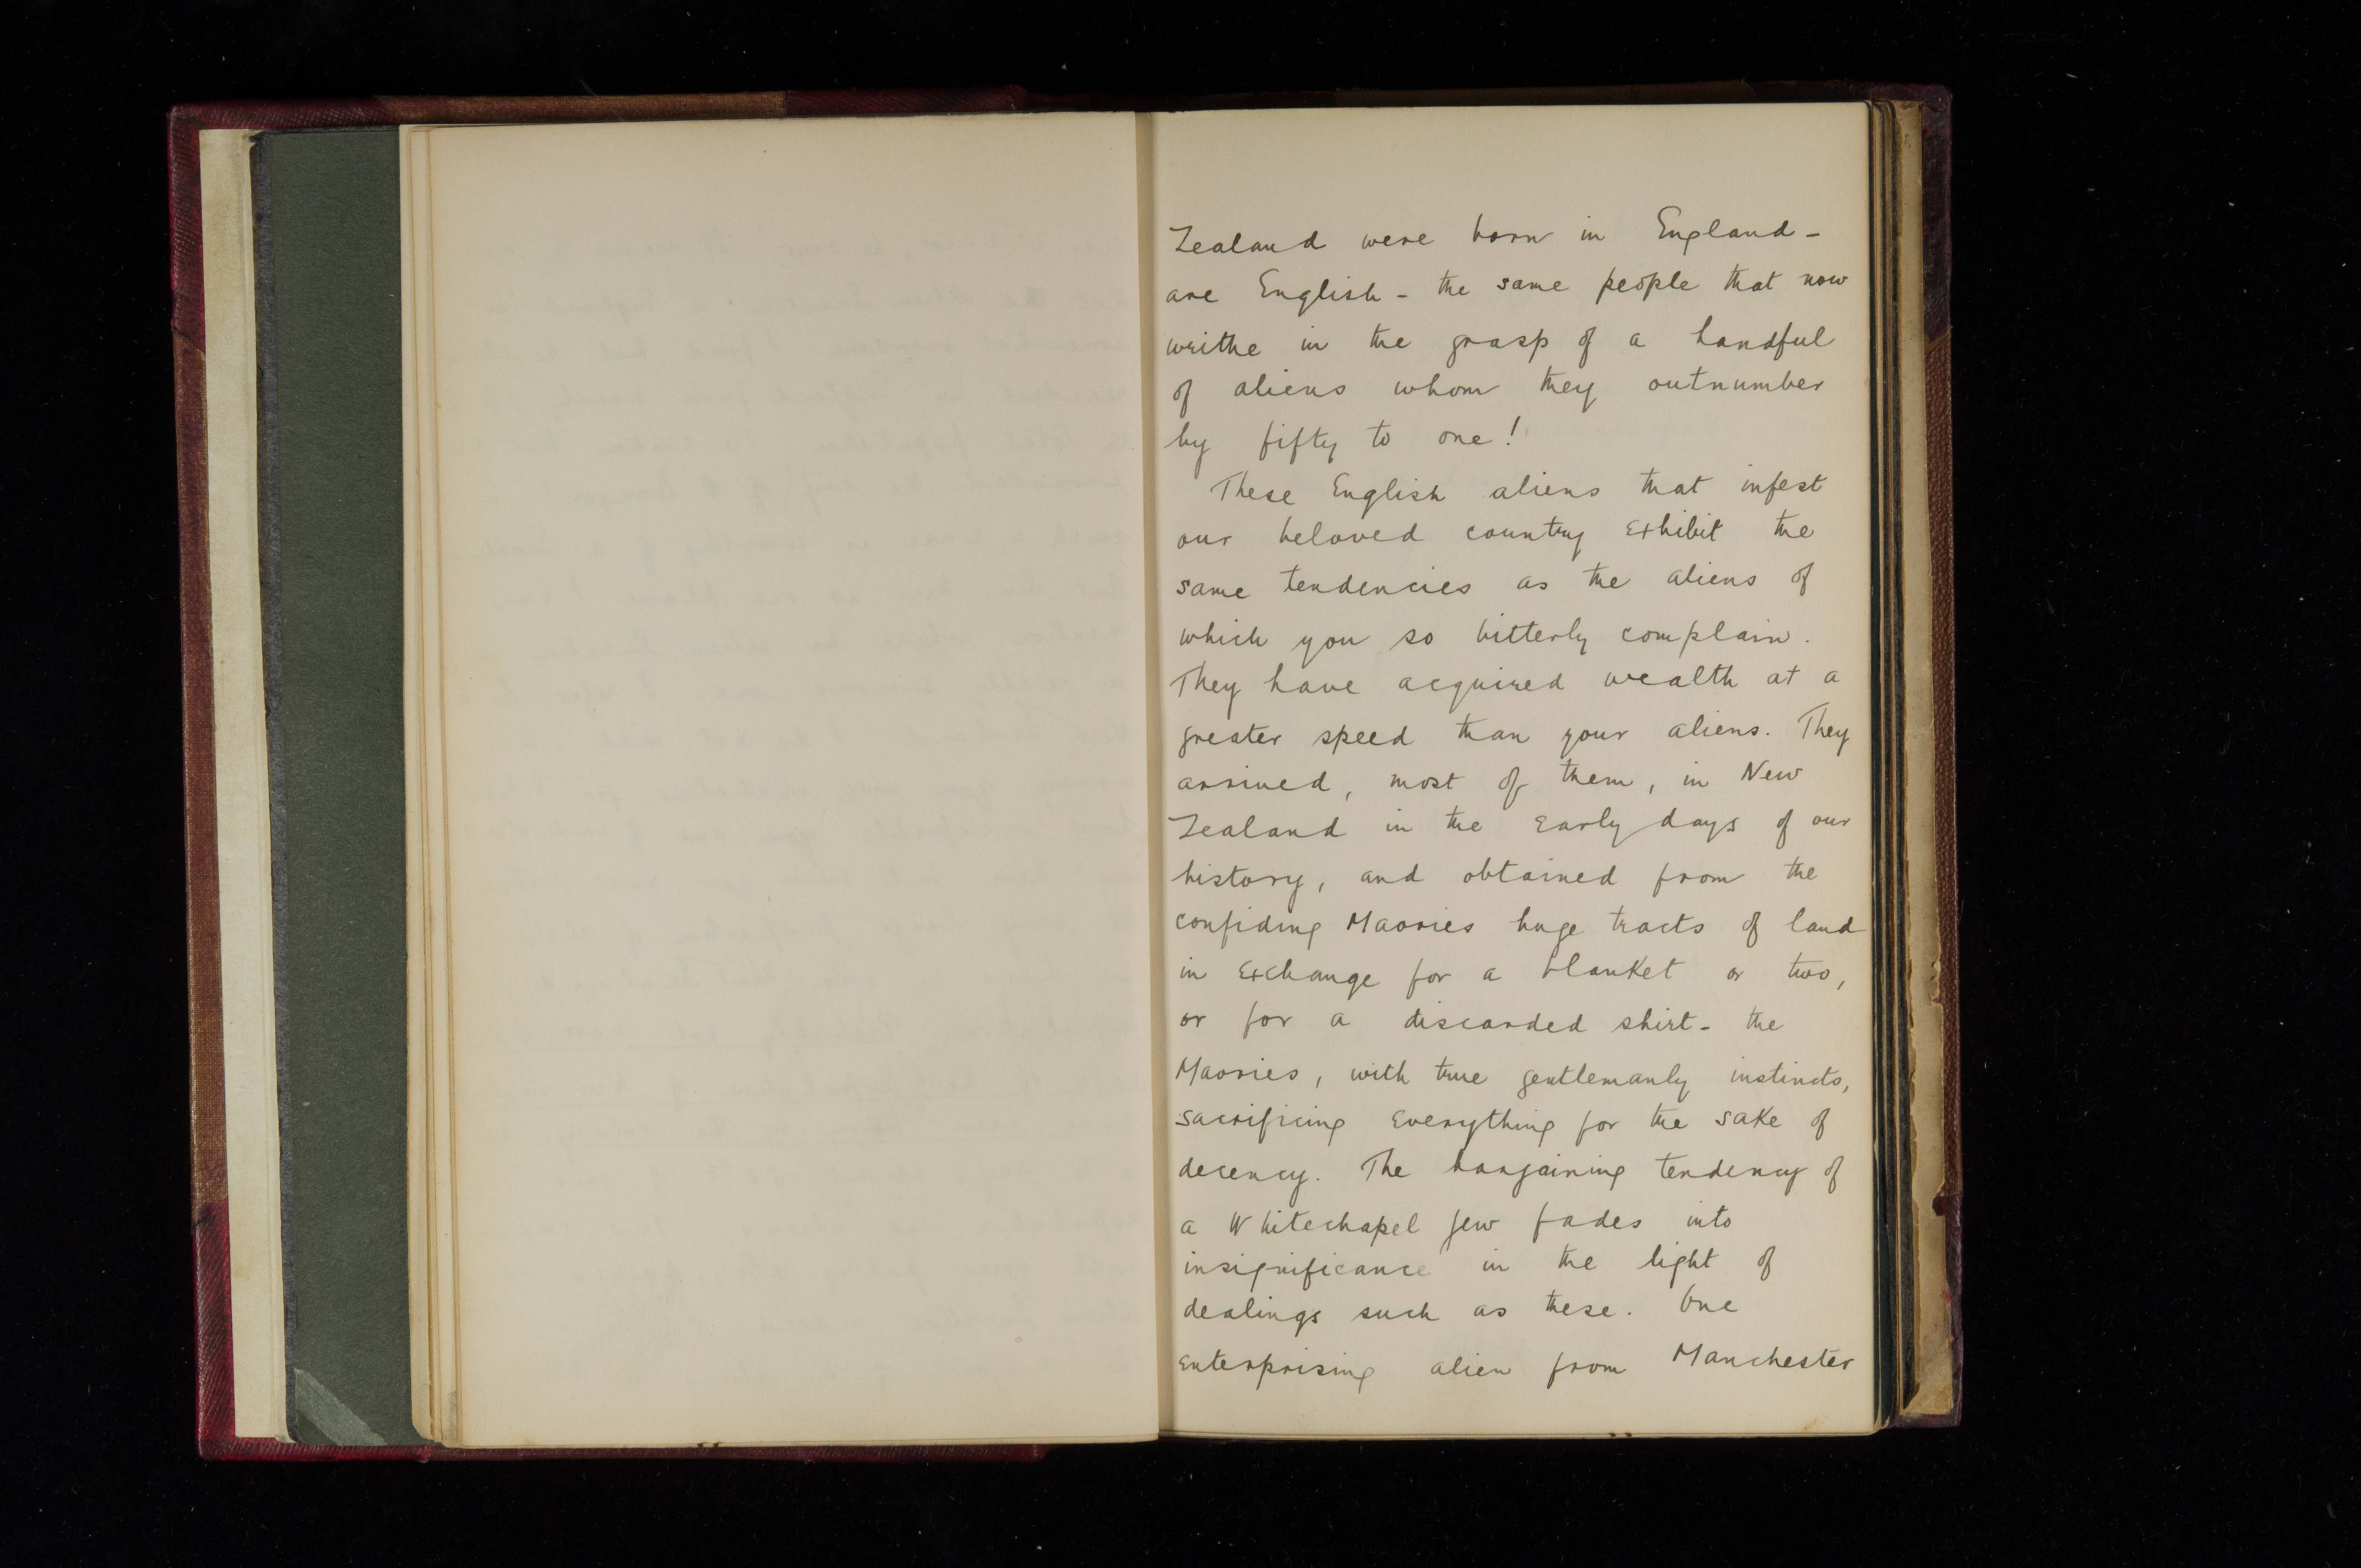 Zealand were born in England -
are English - the same people that now
writhe in the grasp of a handful
of aliens whom they outnumber
by fifty to one!
These English aliens that infest
our beloved country exhibit the
same tendencies as the aliens of
which you so bitterly complain.
They have acquired wealth at a
greater speed than your aliens. They
arrived, most of them, in New
Zealand in the early days of our
history, and obtained from the
confiding Maories huge tracts of land
in exchange for a blanket or two,
or for a discarded shirt - the
Maories, with true gentlemanly instincts,
sacrificing everything for the sake of
decency. The bargaining tendency of
a Whitechapel Jew fades into
insignificance in the light of
dealings such as these. One
enterprising alien from Manchester